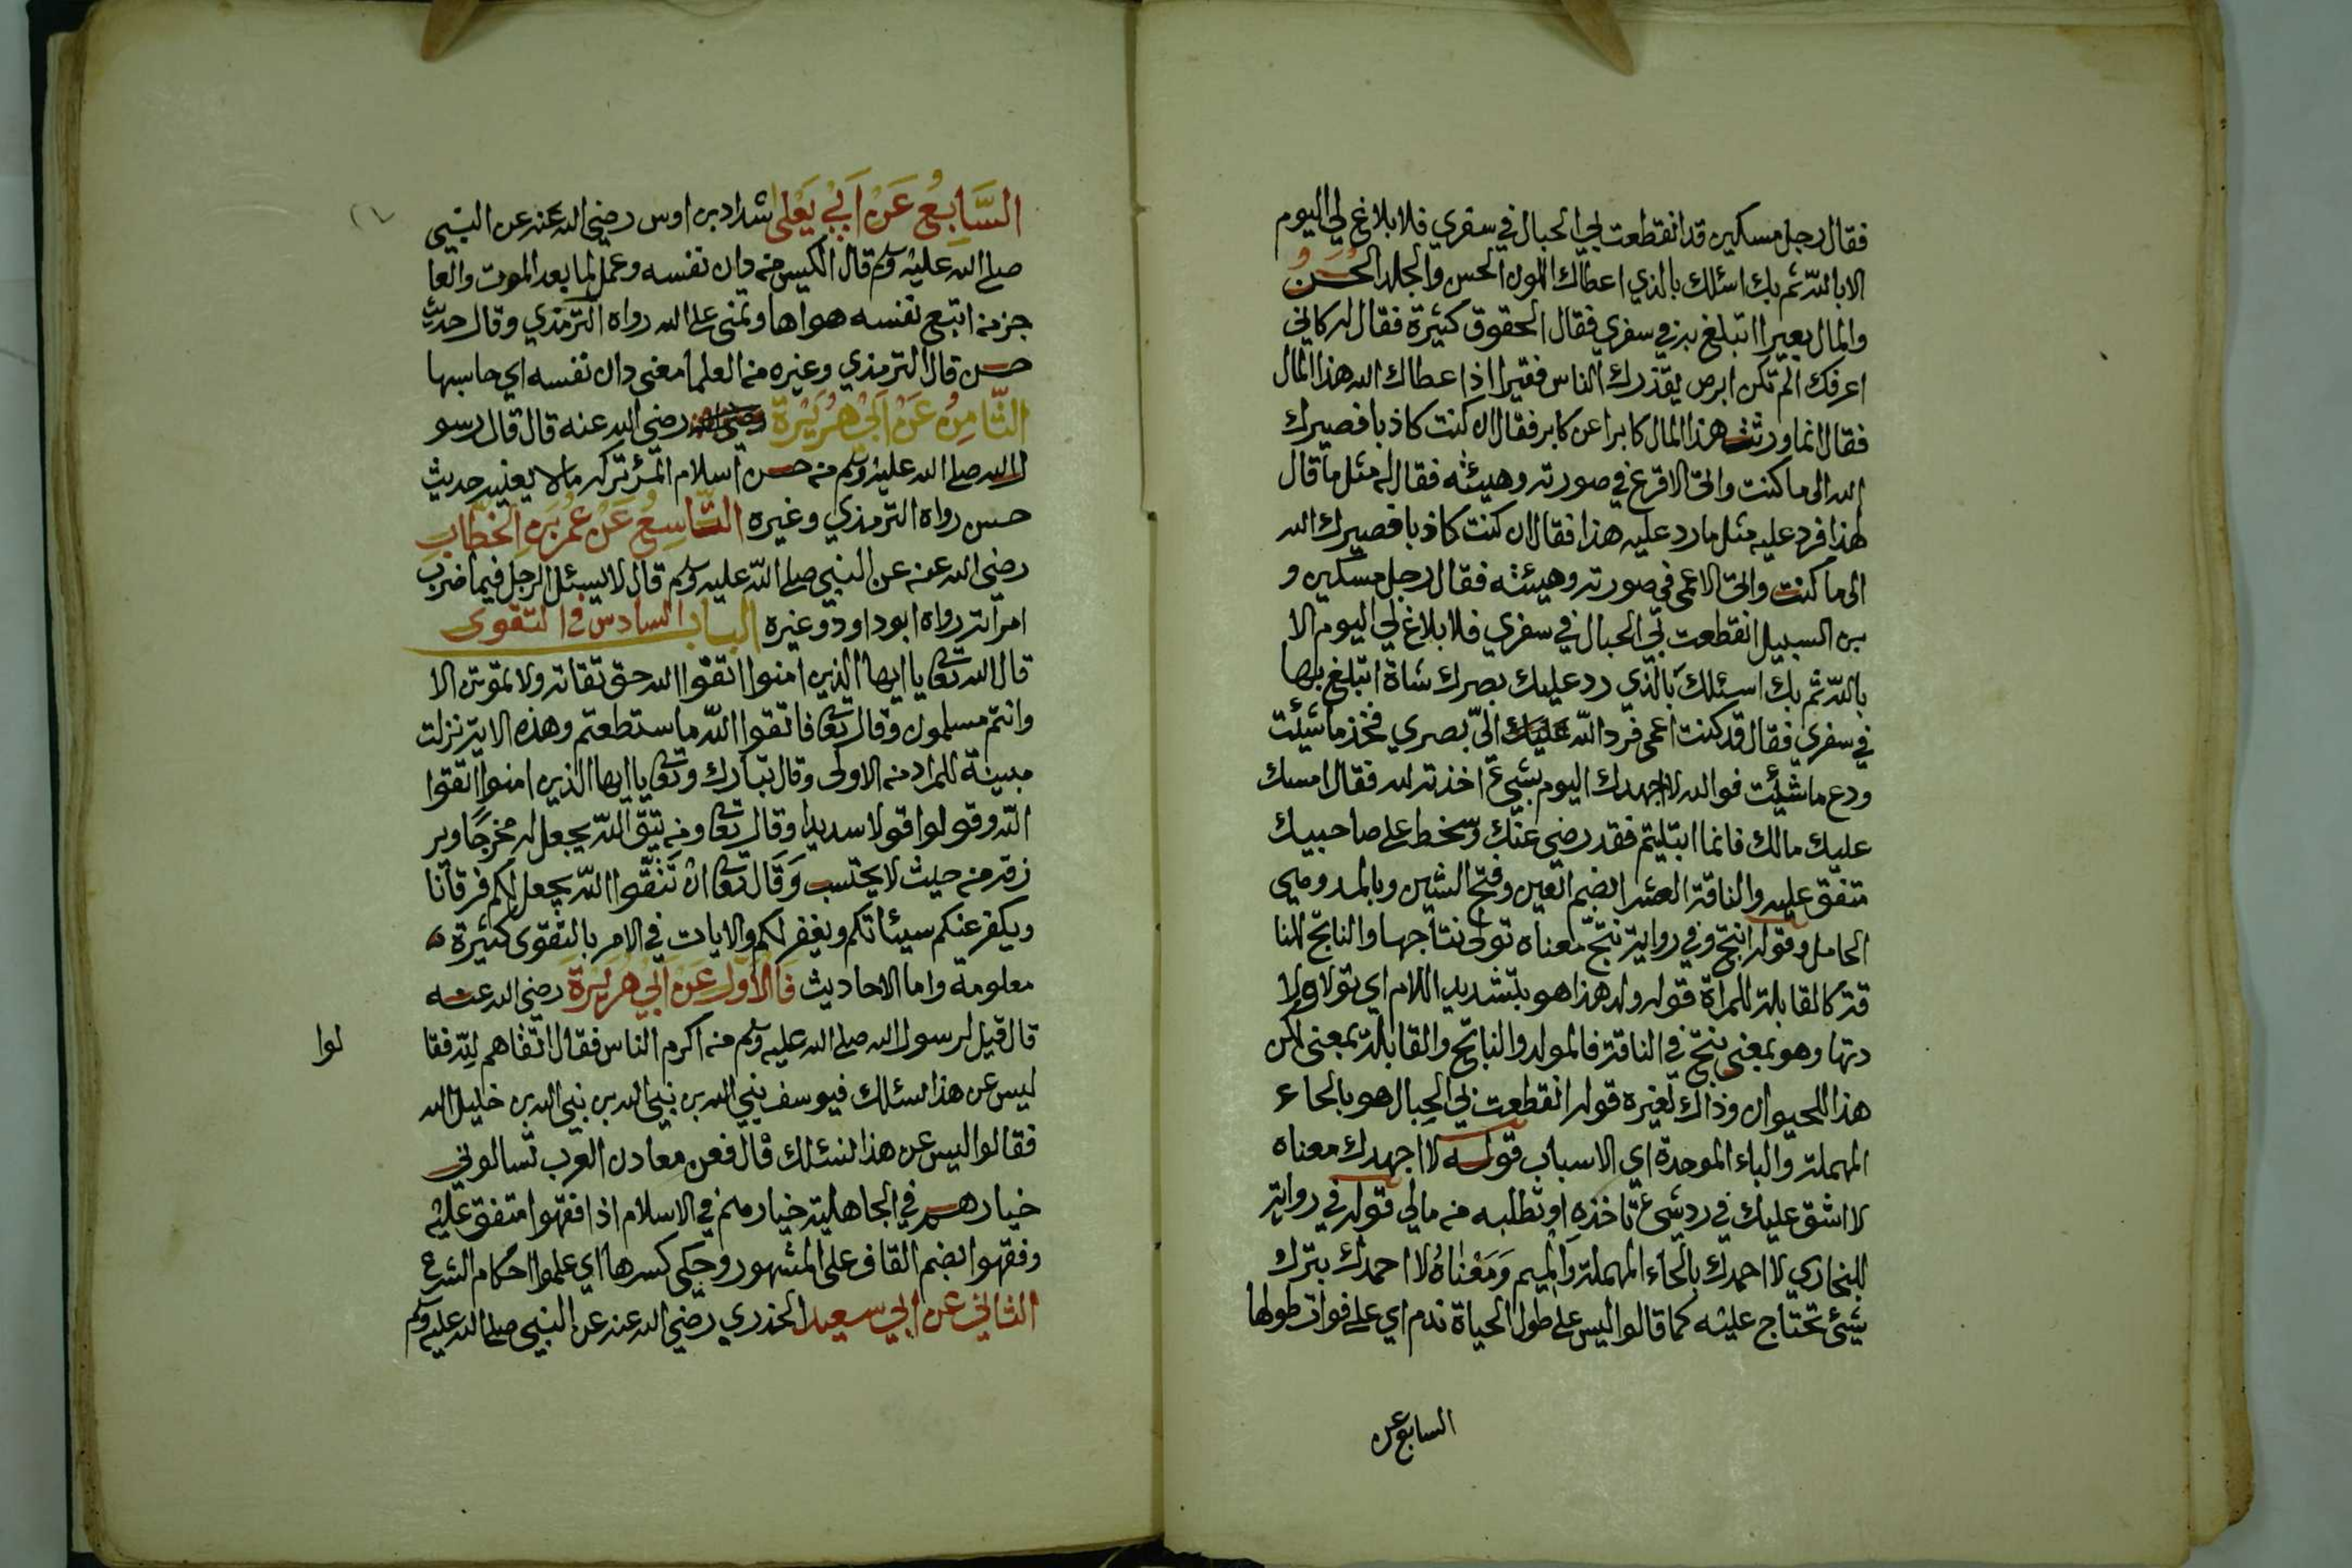 فقال رجل مسكين قد انقطعت بي الحبال في سفري فلا بلاغ لي اليوم
الا بالله ثم بك اسئلك بالذي اعطاك اللون الحسن والجلد الحسن
والمال بعيرا اتبلغ به في سفري فقال الحقوق كثيرة فقال له كاني
اعرفك الم تكن ابرص يقذرك الناس فقيرا اذا عطاك الله هذا المال
فقال انما ورثت هذا المال كابرا عن كابر فقال ان كنت كاذبا فصيرك
الله الى ما كنت واتى الاقرع في صورته وهيئته فقال له مثل ما قال
لهذا فرد عليه مثل ما رد عليه هذا فقال ان كنت كاذبا فصيرك الله
الى ما كنت واتى الاعمى في صورته وهيئته فقال رجل مسكين و
بن السبيل انقطعت بي الحبال في سفري فلا بلاغ لي اليوم الا
بالله ثم بك اسئلك بالذي رد عليك بصرك شاة اتبلغ بها
في سفري فقال قد كنت اعمى فرد الله اليّ بصري فخذ ما شيئت
ودع ما شيئت فوالله لا اجهدك اليوم بشيء اخذته لله فقال امسك
عليك مالك فانما ابتليتم فقد رضي عنك وسخط على صاحبيك
متفق عليه والناقة العشرا بضم العين وفتح الشين وبالمد وهي
الحامل وقوله انتج وفي رواية نتج معناه تولى نتاجها والناتج للنا
قة كالقابلة للمراة قوله ولد هذا هو بتشديد اللام اي تولا ولا
دتها وهو بمعنى نتج في الناقة فالمولد والناتج والقابلة بمعنى لكن
هذا للحيوان وذاك لغيره قوله انقطعت بي الحبال هو بالحاء
المهملة والباء الموحدة اي الاسباب قوله لا اجهدك معناه
لا اشق عليك في رد شيء تاخذه او تطلبه من مالي قوله في رواية
للبخاري لا احمدك بالحاء المهملة والميم وَمَعْنَاهُ لا احمدك بترك
شيئ تحتاج عليه كما قالوا ليس على طول الحياة ندم اي على فوات طولها
السابع عن
السَّابِعُ عَنْ اَبِي يَعْلى شداد بن اوس رضي الله عنه عن النبي
صلى الله عليه وسلم قال الكيس من دان نفسه وعمل لما بعد الموت والعا
جز من اتبع نفسه هواها وتمنى على الله رواه الترمذي وقال حديث
حسن قال الترمذي وغيره من العلما معنى دان نفسه اي حاسبها
الثَّامِنُ عَنْ اَبِي هُرَيْرَةَ رضي الله عنه قال قال رسو
ل الله صلى الله عليه وسلم من حسن اسلام المرء تركه مالا يعنيه حديث
حسن رواه الترمذي وغيره التَّاسِعُ عَنْ عُمَرَ بْنِ الخَطَّابِ
رضي الله عنه عن النبي صلى الله عليه وسلم قال لا يسئل الرجل فيما ضرب
امراته رواه ابوداود وغيره الباب السادس في التقوى
قال الله تعا يا ايها الذين امنوا اتقوا الله حق تقاته ولا تموتن الا
وانتم مسلمون وقال تعا فاتقوا الله ما ستطعتم وهذه الاية نزلت
مبينة للمراد من الاولى وقال تبارك وتعا يا ايها الذين امنوا اتقوا
الله وقولوا قولا سديدا وقال تعا ومن يتق الله يجعل له مخرجًا وير
زقه من حيث لا يحتسب وَقَالَ تعا ان تَتَّقُوا الله يجعل لكم فرقانا
ويكفر عنكم سيئاتكم ويغفر لكم والايات في الامر بالتقوى كثيرة
معلومة واما الاحاديث فَالْاَوَّلُ عَنْ اَبِي هُرَيْرَةَ رضي الله عنه
قال قيل لرسول الله صلى الله عليه وسلم من اكرم الناس فقال اتقاهم لله فقا
لوا
ليس عن هذا نسئلك فيوسف نبي الله بن نبي الله بن نبي الله بن خليل الله
فقالوا ليس عن هذا نسئلك قال فعن معادن العرب تسالوني
خيارهم في الجاهلية خيارهم في الاسلام اذا فقهوا متفق عليه
وفقهوا بضم القاف على المشهور وحكى كسرها اي علموا احكام الشرع
الثاني عن ابي سعيد الخدري رضي الله عنه عن النبي صلى الله عليه وسلم